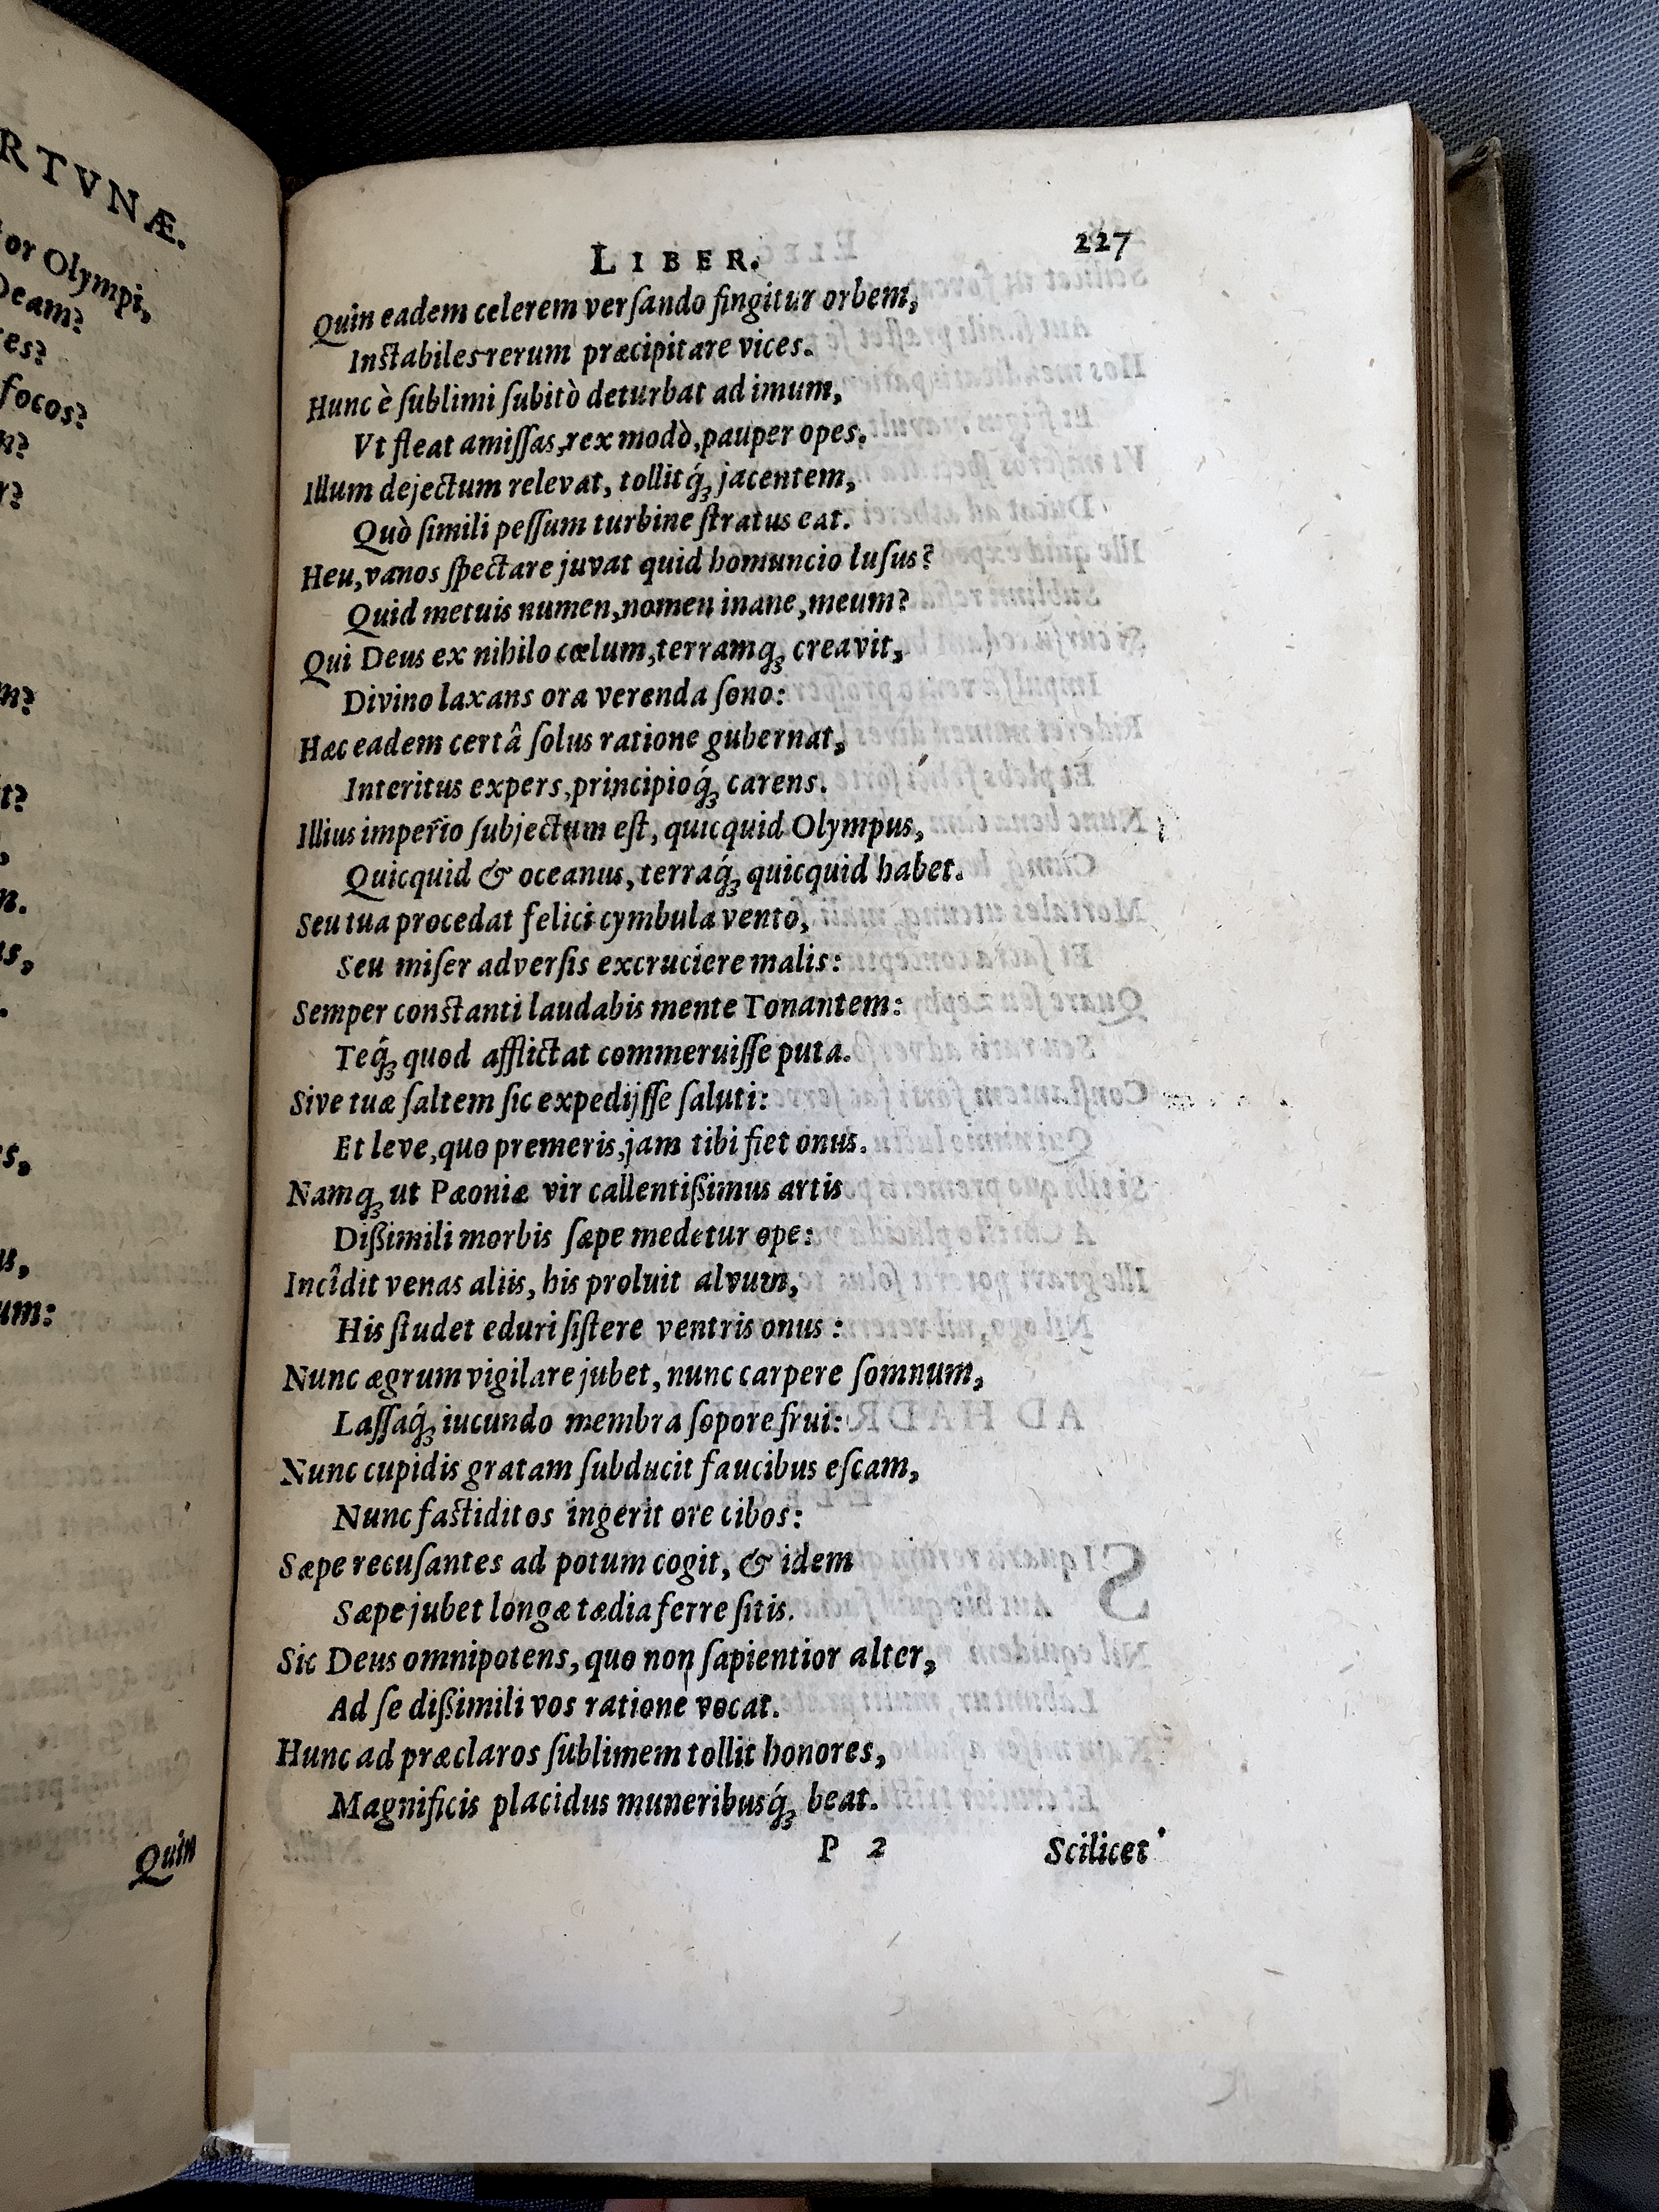 RTVNÆ.
or Olympi,
Deam?
es?
focos?
n?
r?
m?
t?
n.
us,
es,
us,
um:
Quin
LIBER. 227
Quin eadem celerem verſando fingitur orbem,
Inſtabiles rerum præcipitare vices.
Hunc è ſublimi ſubitò deturbat ad imum,
Vt fleat amiſſas, rex modò, pauper opes.
Illum dejectum relevat, tollitq́ꝫ jacentem,
Quò ſimili peſſum turbine ſtratus eat.
Heu, vanos ſpectare juvat quid homuncio luſus?
Quid metuis numen, nomen inane, meum?
Qui Deus ex nihilo cœlum, terramqꝫ creavit,
Divino laxans ora verenda ſono:
Hæc eadem certâ ſolus ratione gubernat,
Interitus expers, principioq́ꝫ carens.
Illius imperio ſubjectum eſt, quicquid Olympus,
Quicquid & oceanus, terraq́ꝫ quicquid habet.
Seu tua procedat felici cymbula vento,
Seu miſer adverſis excruciere malis:
Semper conſtanti laudabis mente Tonantem:
Teq́ꝫ quod afflictat commeruiſſe puta.
Sive tuæ ſaltem ſic expedijſſe ſaluti:
Et leve, quo premeris, jam tibi fiet onus.
Namqꝫ ut Pæoniæ vir callentißimus artis
Dißimili morbis ſæpe medetur ope:
Incîdit venas aliis, his proluit alvum,
His ſtudet eduri ſiſtere ventris onus:
Nunc ægrum vigilare jubet, nunc carpere ſomnum,
Laſſaq́ꝫ iucundo membra ſopore frui:
Nunc cupidis gratam ſubducit faucibus eſcam,
Nunc faſtiditos ingerit ore cibos:
Sæpe recuſantes ad potum cogit, & idem
Sæpe jubet longæ tædia ferre ſitis.
Sic Deus omnipotens, quo non ſapientior alter,
Ad ſe dißimili vos ratione vocat.
Hunc ad præclaros ſublimem tollit honores,
Magnificis placidus muneribusq́ꝫ beat.
P 2 Scilicet